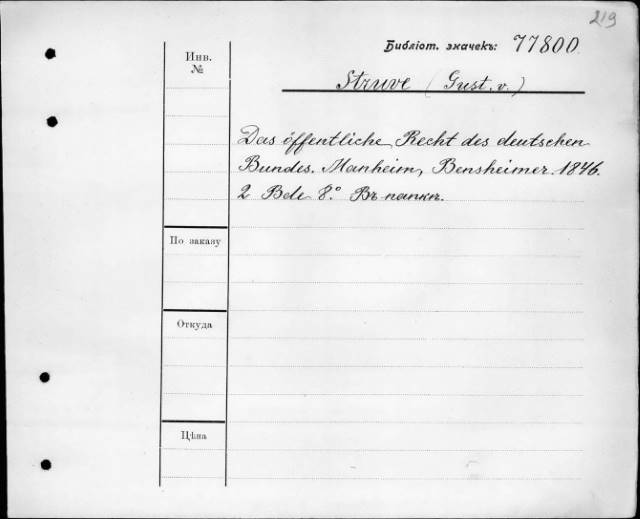 219
Библіот. значекъ: 77800
Инв.
№
Struve (Gust. v.)
Das öffentliche Recht des deutschen
Bundes. Manheim, Bensheimer. 1846.
2 Bde 8.° Въ папкѣ.
По заказу
Откуда
Цѣна